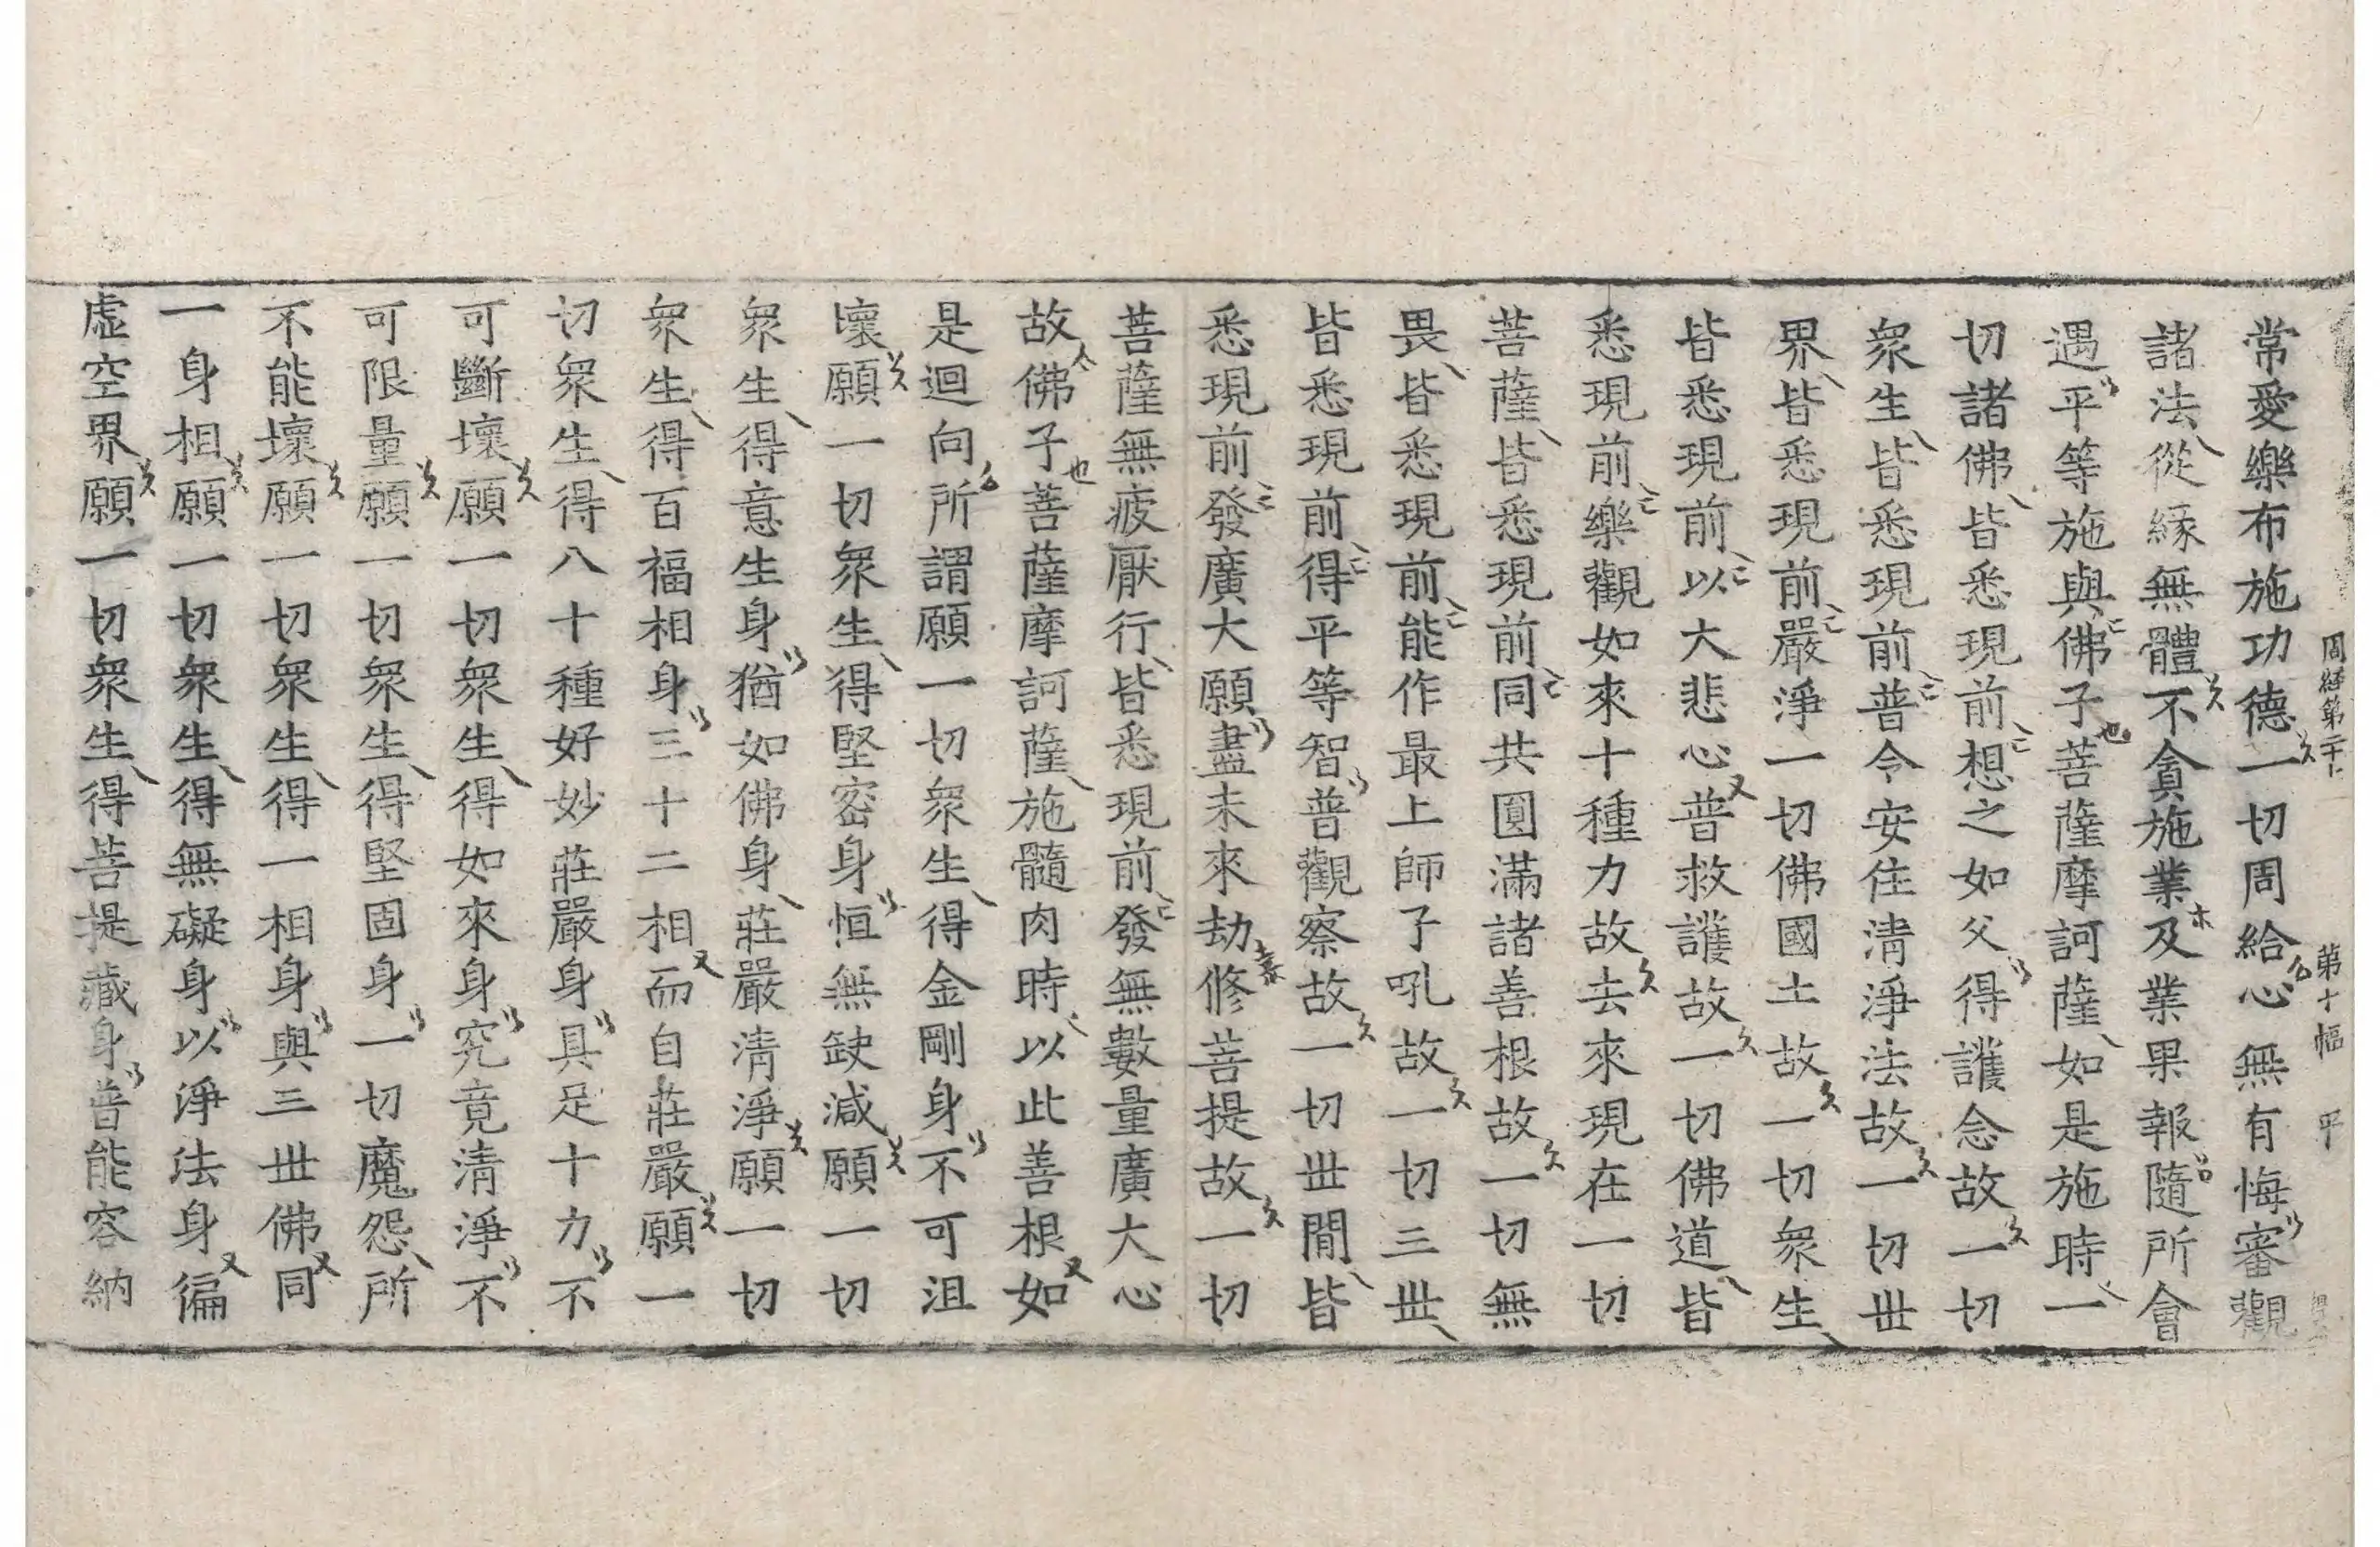 周経第二十
第十幅
平
常愛樂布施功德一切周給心無有悔審觀
諸法從縁無體不貪施業及業果報隨所會
遇平等施與佛子菩薩摩訶薩如是施時一
切諸佛皆悉現前想之如父得護念故一切
衆生皆悉現前普令安住清淨法故一切丗
界皆悉現前嚴淨一切佛國土故一切衆生
皆悉現前以大悲心普救護故一切佛道皆
悉現前樂觀如來十種力故去來現在一切
菩薩皆悉現前同共圓滿諸善根故一切無
畏皆悉現前能作最上師子吼故一切三丗
皆悉現前得平等智普觀察故一切丗間皆
悉現前發廣大願盡未來劫修菩提故一切
菩薩無疲厭行皆悉現前發無數量廣大心
故佛子菩薩摩訶薩施髓肉時以此善根如
是迴向所謂願一切衆生得金剛身不可沮
壞願一切衆生得堅密身恒無缺減願一切
衆生得意生身猶如佛身莊嚴清淨願一切
衆生得百福相身三十二相而自莊嚴願一
切衆生得八十種好妙莊嚴身具足十力不
可斷壞願一切衆生得如來身究竟清淨不
可限量願一切衆生得堅固身一切魔怨所
不能壞願一切衆生得一相身與三丗佛同
一身相願一切衆生得無礙身以淨法身徧
虛空界願一切衆生得菩提藏身普能容納